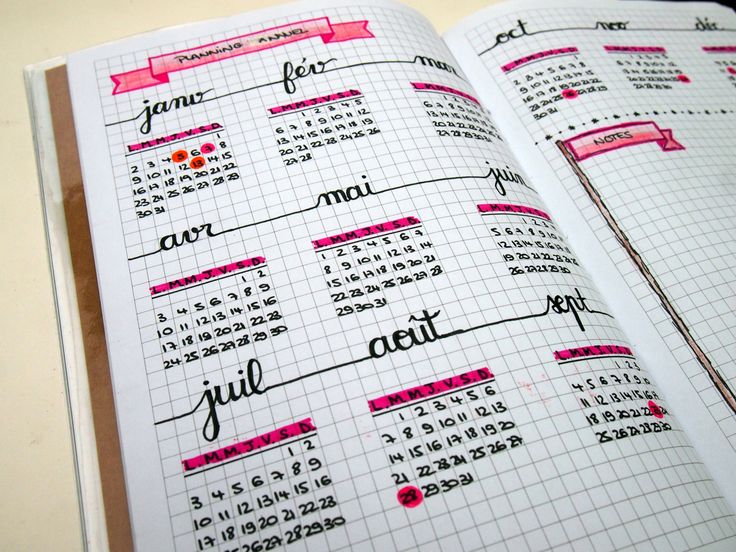 PLANNING ANNUEL
janv
L.M.M.J.V.S.D.
2 3 4 5 6 7 8
9 10 11 12 13 14 15
16 17 18 19 20 21 22
23 24 25 26 27 28 29
30 31
fév
L.M.M.J.V.S.D.
1 2 3 4 5
6 7 8 9 10 11 12
13 14 15 16 17 18 19
20 21 22 23 24 25 26
27 28
mar
L.M.M.J.V.S.D.
avr
L.M.M.J.V.S.D.
1 2
3 4 5 6 7 8 9
10 11 12 13 14 15 16
17 18 19 20 21 22 23
24 25 26 27 28 29 30
mai
L.M.M.J.V.S.D.
1 2 3 4 5 6 7
8 9 10 11 12 13 14
15 16 17 18 19 20 21
22 23 24 25 26 27 28
29 30 31
juin
L.M.M.J.V.S.D.
1 2 3
5 6 7 8 9 10
12 13 14 15
19 20 21 22
26 27 28 29
juil
L.M.M.J.V.S.D.
1 2
3 4 5 6 7 8 9
10 11 12 13 14 15 16
17 18 19 20 21 22 23
août
L.M.M.J.V.S.D.
1 2 3 4 5 6
7 8 9 10 11 12 13
14 15 16 17 18 19 20
21 22 23 24 25 26 27
28 29 30 31
sept
L.M.M.J.V.S.D.
1 2 3
4 5 6 7 8 9
11 12 13 14 15 16 17
18 19 20 21 22 23 24
25 26 27 28 29 30
oct
L.M.M.J.V.S.D.
2 3 4 5 6 7 8
9 10 11 12 13 14 15
16 17 18 19 20 21 22
23 24 25 26 27 28 29
30 31
nov
L.M.M.J.V.S.D.
déc
NOTES